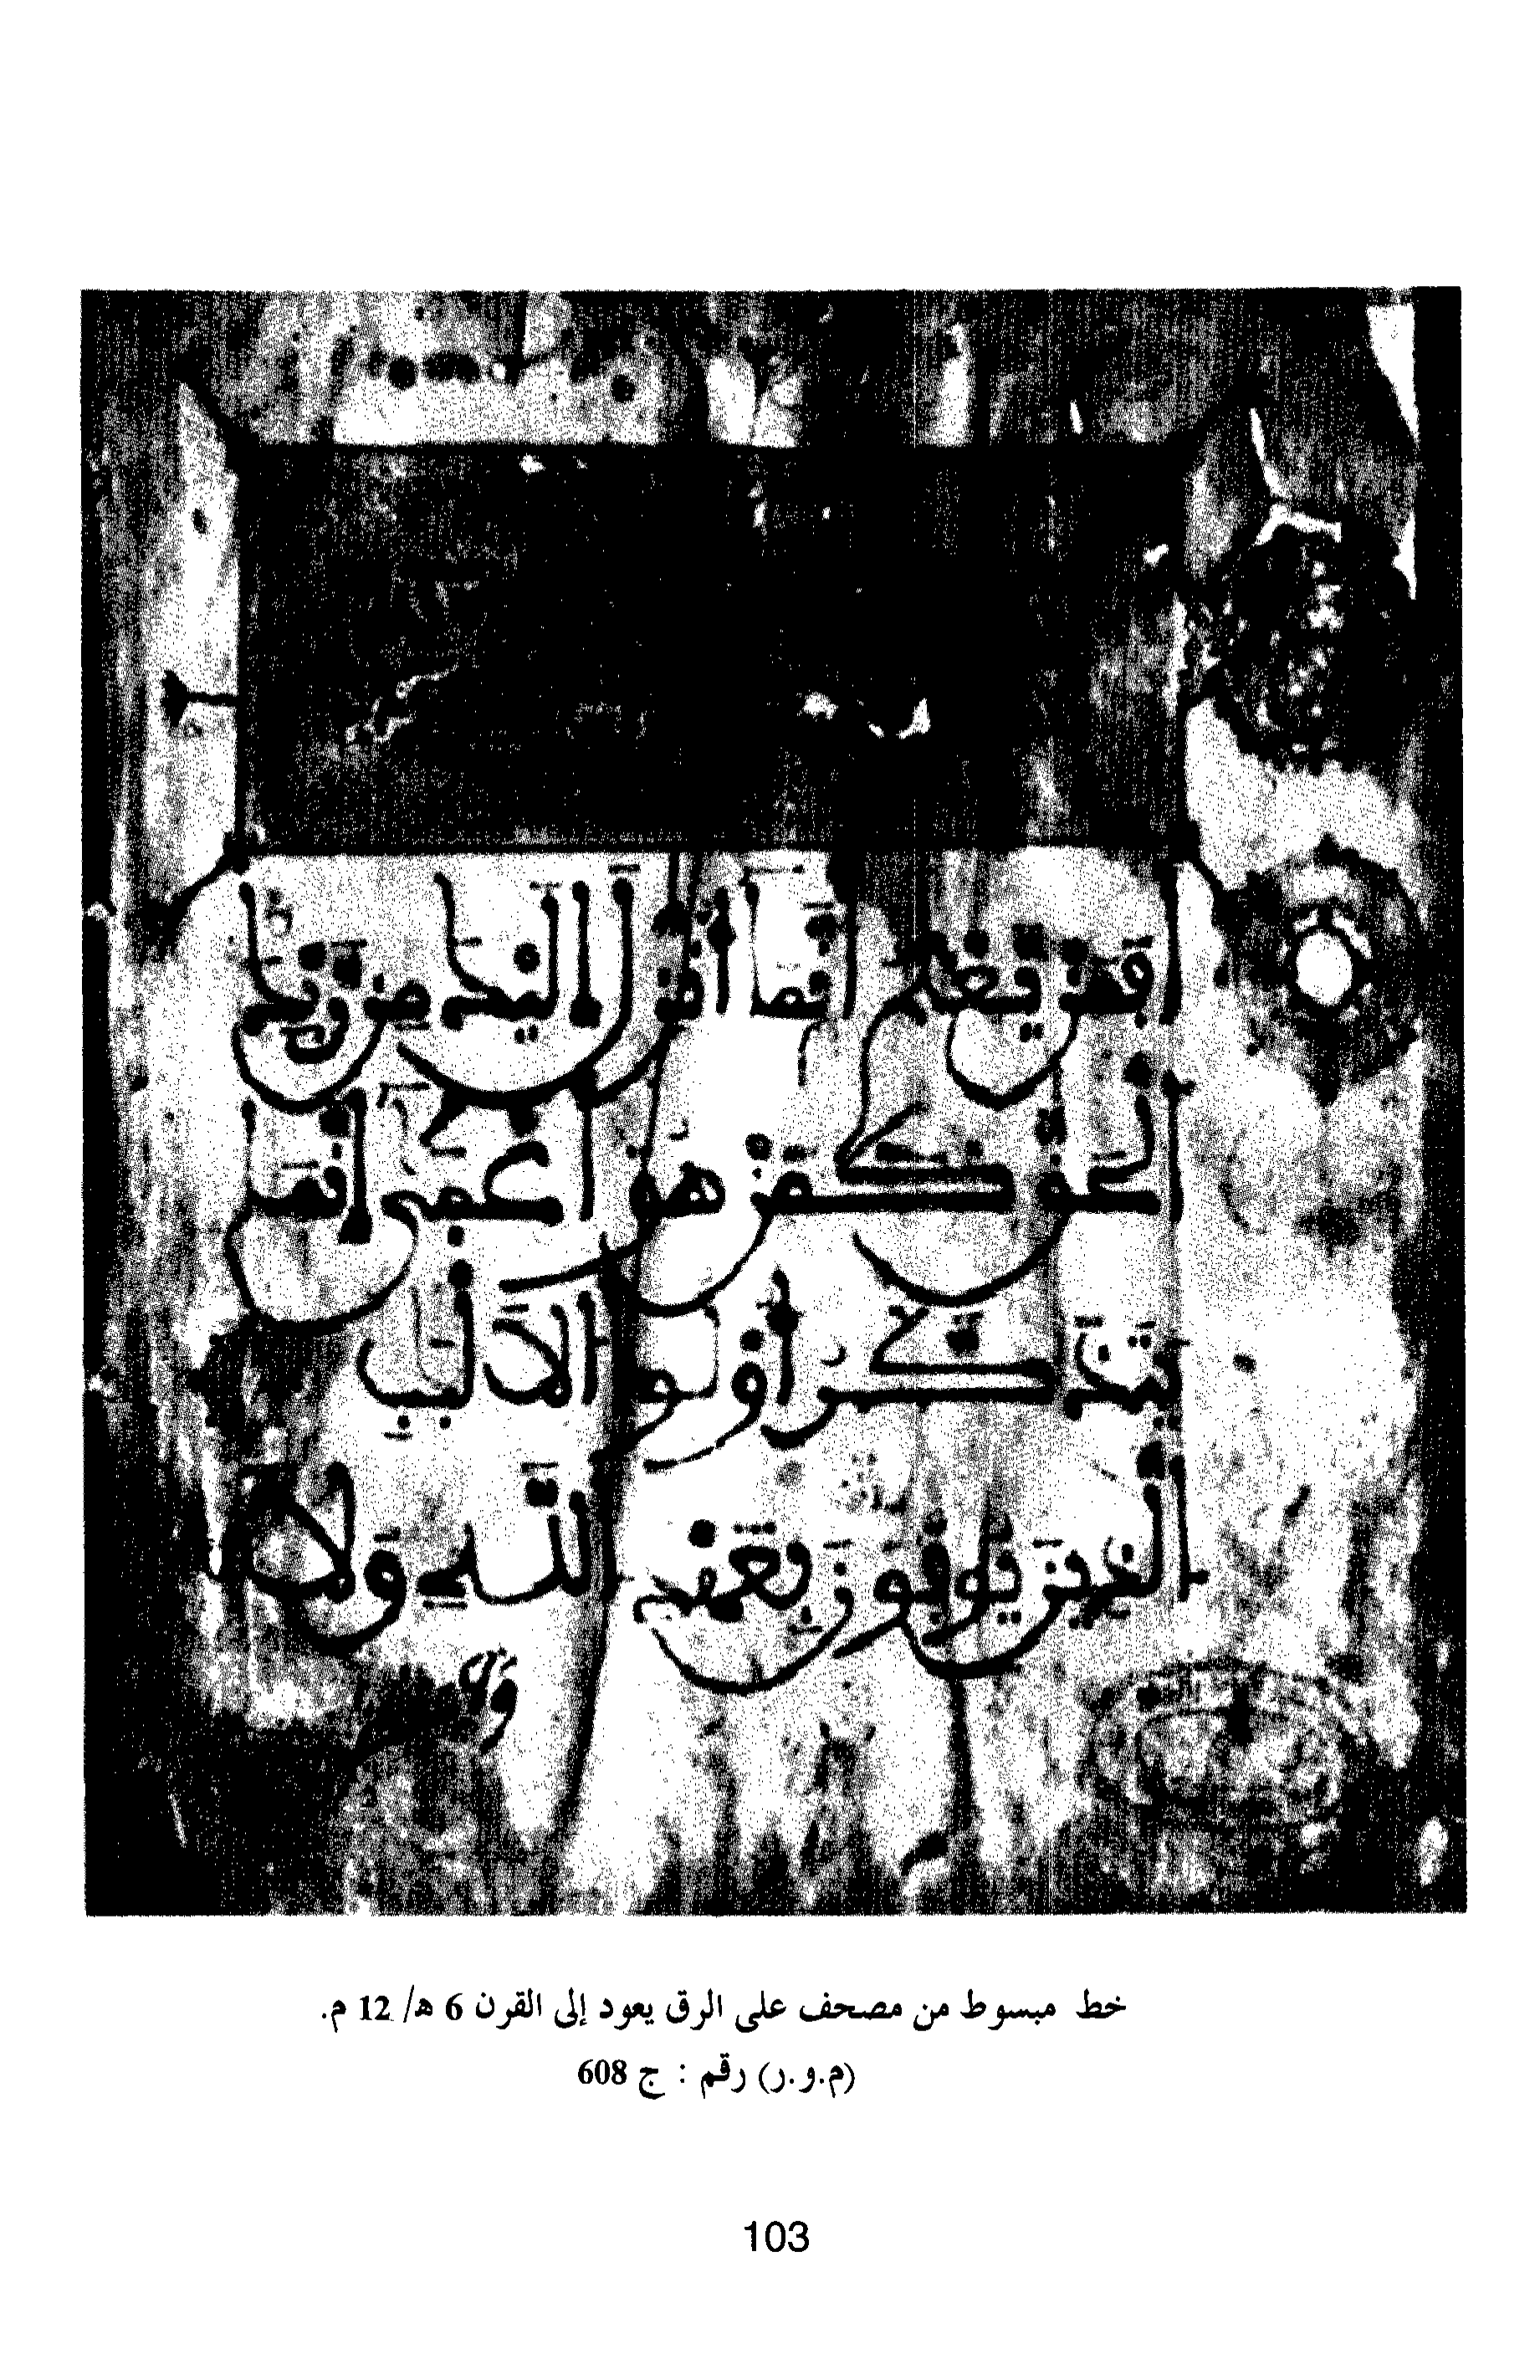 أفمن يعلم أنما أنزل إليك من ربك
الحق كمن هو أعمى إنما
يتذكر أولوا الألبب
الذين يوفون بعهد الله ولا
خط مبسوط من مصحف على الرق يعود إلى القرن 6 ه/ 12 م.
(م.و.ر) رقم : ج 608
103